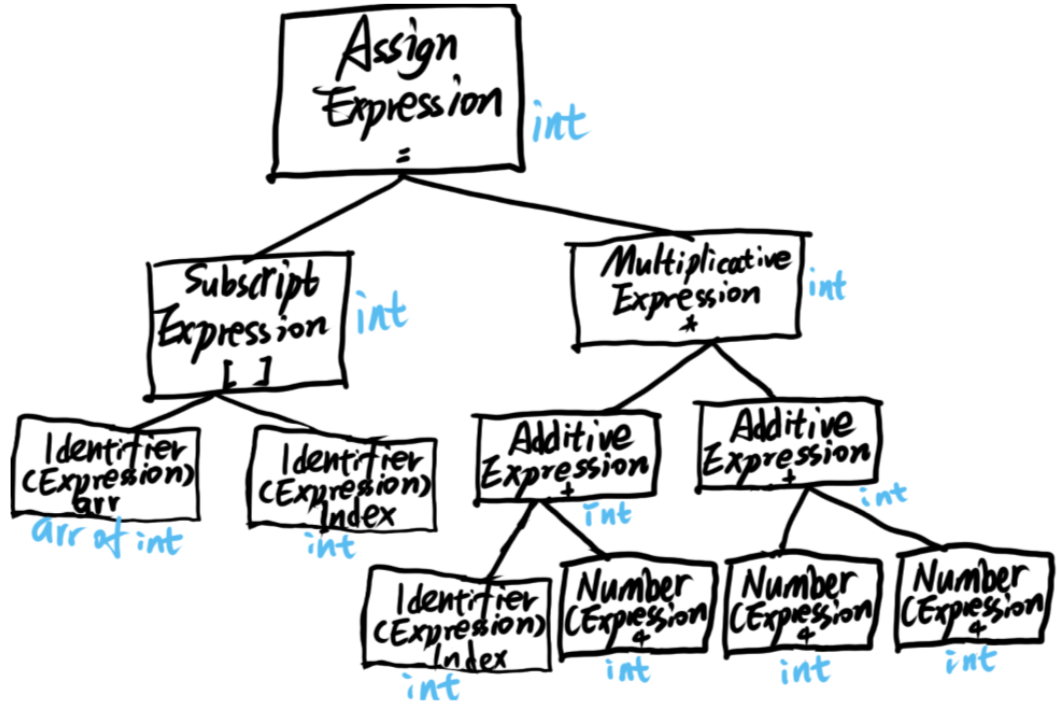 Assign
Expression
=
int
Subscript
Expression
[ ]
int
Multiplicative
Expression
*
int
Identifier
(Expression)
arr
arr of int
Identifier
(Expression)
Index
int
Additive
Expression
+
int
Additive
Expression
+
int
Identifier
(Expression)
Index
int
Number
(Expression
4
int
Number
(Expression
4
int
Number
(Expression
4
int